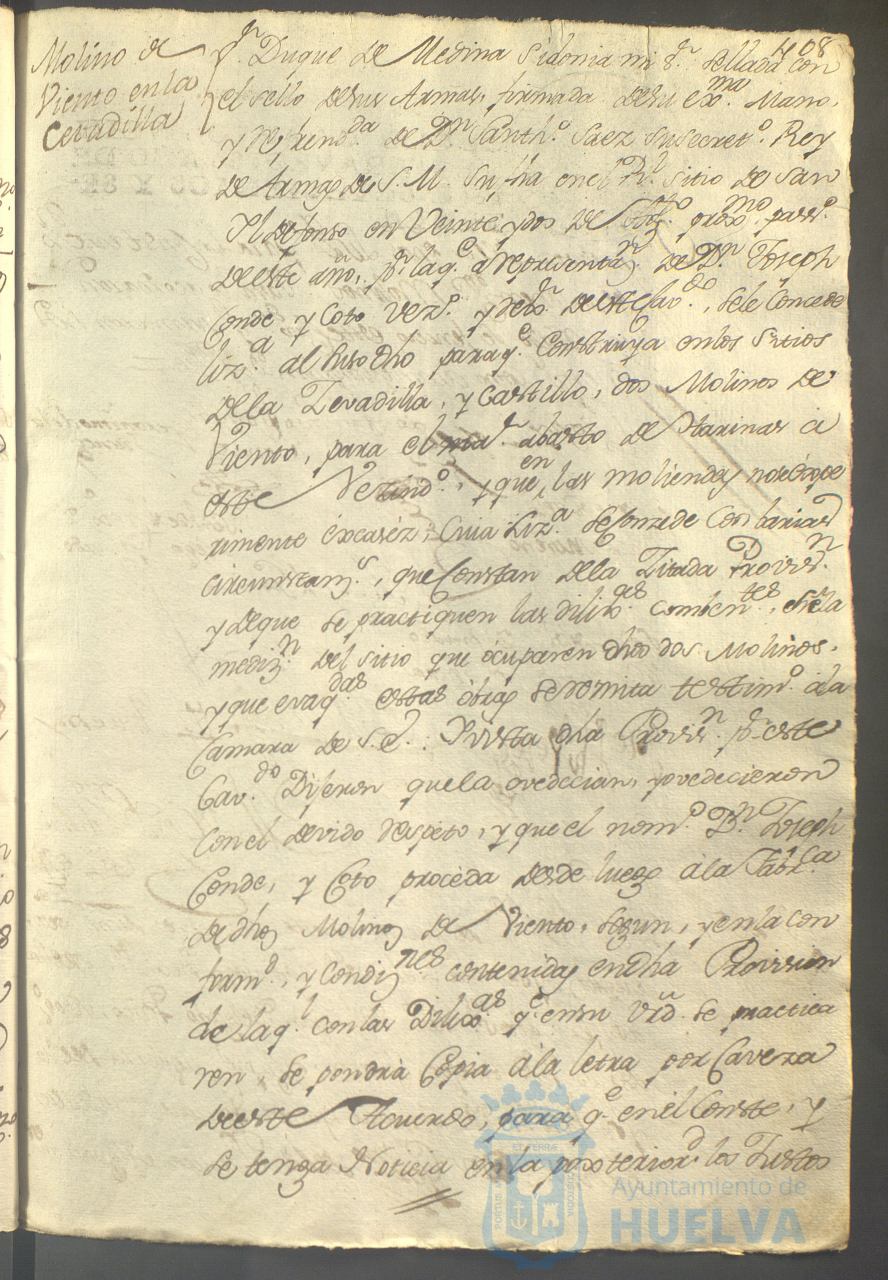 408
Molino de
Viento en la
Cevadilla
Sr. Duque de Medina Sidonia mi Sr. sellada con
el sello de sus Armas, firmada de su exma. Mano,
y refrenda. de Dn. Santho. Saez su secreto. Rey
de Armas de S. M. Su fha en el Rl. sitio de San
Yldefonso en Veinte y dos de proxmo. passo.
de este año, pr. la qe. a representan. de Dn. Joseph
Conde y Coto vezo. y de este Cavdo. se le Concede
liza. al susodho para qe. Construya en los sitios
de la Zevadilla, y Castillo, dos Molinos de
Viento, para el abasto de Harinas a
este Vezindo., y que en las moliendas no se expe
rimente escasez; Cuia Liza. se conzede con barias
circunstans., que Constan de la Zitada Provisn.
y de que se practiquen las dilixas. combentes. de la
medizn. del sitio que ócuparen dhos dos Molinos,
y que evaqdas. estas óbras se remita testimo. á la
Camara de S. E. Y vista dha Provisn. pr. este
Cavdo. Dijeron que la ovedecian, y ovedecieron
con el devido respeto, y que el nomo. Dn. Joseph
Conde, y Coto proceda desde luego á la Fabrca.
de dhos Molinos de Viento, segun, y en la con
formd., y Condiznes. contenidas en dha Provision
de la ql. con las Dilixas. qe. en su vrd. se practica
ren, se pondrá Copia á la letra por Caveza
de este Acuerdo, para qe. en él Conste, y
se tenga Noticia en la posteriord. los Justos
PORTUS MARIS ET TERRÆ CUSTODIA
Ayuntamiento de
HUELVA